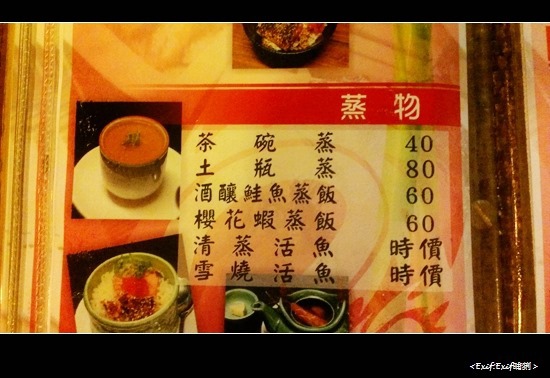 蒸物
茶碗蒸 40
土瓶蒸 80
酒釀鮭魚蒸飯 60
櫻花蝦蒸飯 60
清蒸活魚 時價
雪燒活魚 時價